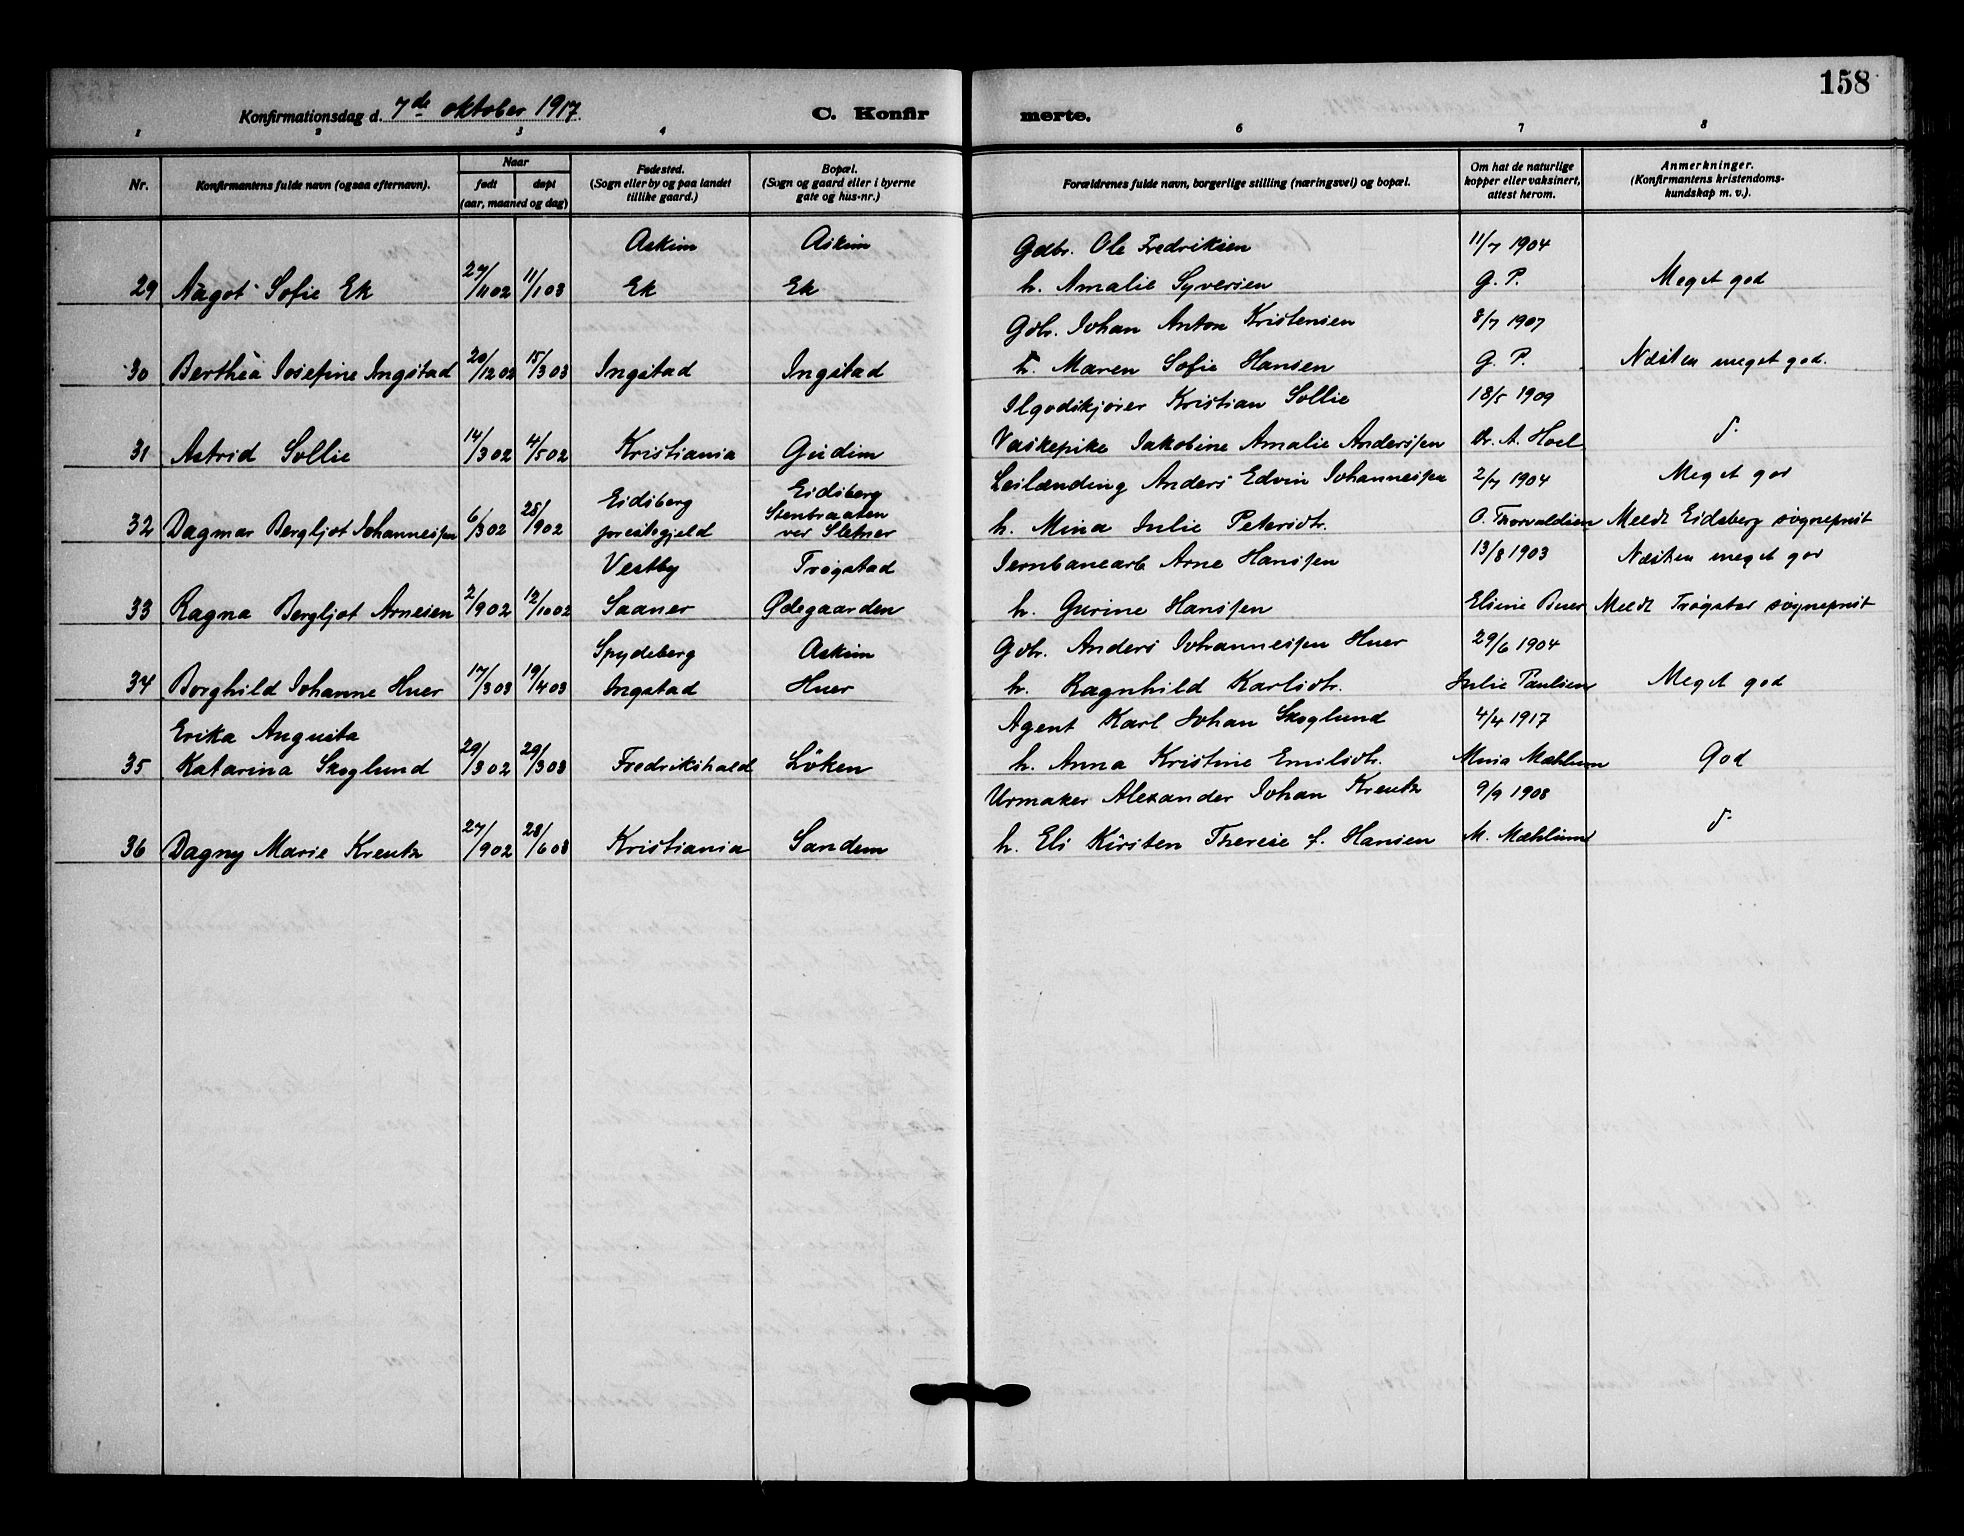 158
Konfirmationsdag d. 7de oktober 1917.
C. Konfir
merte.
1 2 3 4 6 7 8
Nr.
Konfirmantens fulde navn (ogsaa efternavn).
Naar
født døpt
(aar, maaned og dag)
Fødested.
(Sogn eller by og paa landet
tillike gaard.)
Bopæl.
(Sogn og gaard eller i byerne
gate og hus-nr.)
Forældrenes fulde navn, borgerlige stilling (næringsvei) og bopæl.
Om hat de naturlige
kopper eller vaksinert,
attest herom.
Anmerkninger.
(Konfirmantens kristendoms-
kundskap m. v.).
Askim Askim Gdbr. Ole Fredriksen 11/7 1904
29 Aagot Sofie Ek 27/11 02 11/1 03 Ek Ek h. Amalie Syversen G. P. Meget god
Gdbr. Johan Anton Kristensen 8/7 1907
30 Berthea Josefine Ingstad 20/12 02 15/3 03 Ingstad Ingstad h. Maren Sofie Hansen G. P. Næsten meget god.
Ilgodskjører Kristian Sollie 18/5 1909
31 Astrid Sollie 14/3 02 4/5 02 Kristiania Gudim Vaskepike Jakobine Amalie Anderssen Dr. A. Hoel
Eidsberg Leilænding Anders Edvin Johannessen 2/7 1904 Meget god
Eidsberg Stenbraaten
32 Dagmar Bergljot Johannessen 6/3 02 25/902 prestegjeld ved Sletner h. Mina Julie Petersdtr. O. Thorvaldsen Meldt Eidsberg sogneprest
Vestby Trøgstad Jernbanearb Arne Hanssen 13/8 1903 Næsten meget god
33 Ragna Bergljot Arnesen 2/902 12/10 02 Saaner Ødegaarden h. Gurine Hanssen Elsine Buer Meldt Trøgstad sogneprest
Spydeberg Askim Gdbr. Anders Johannessen Huer 29/6 1904
34 Borghild Johanne Huer 17/3 03 19/4 03 Ingstad Huer h. Ragnhild Karlsdtr. Julie Paulsen Meget god
Erika Augusta Agent Karl Johan Skoglund 4/4 1917
35 Katarina Skoglund 29/3 02 29/3 03 Fredrikshald Löken h. Anna Kristine Emilsdtr. Mina Mæhlum God
Urmaker Alexander Johan Kreutz 9/9 1908
36 Dagny Marie Kreutz 27/902 28/6 03 Kristiania Sandem h. Eli Kirsten Therese f. Hansen M. Mæhlum